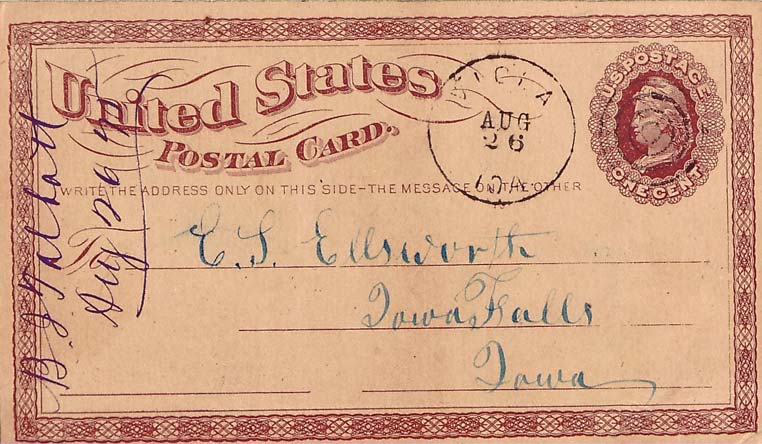 United States
Postal Card.
WRITE THE ADDRESS ONLY ON THIS SIDE-THE MESSAGE ON THE OTHER
U.S. POSTAGE
ONE CENT
AUG
26
IOA
E. S. Ellsworth
Iowa Falls
Iowa
Aug 26